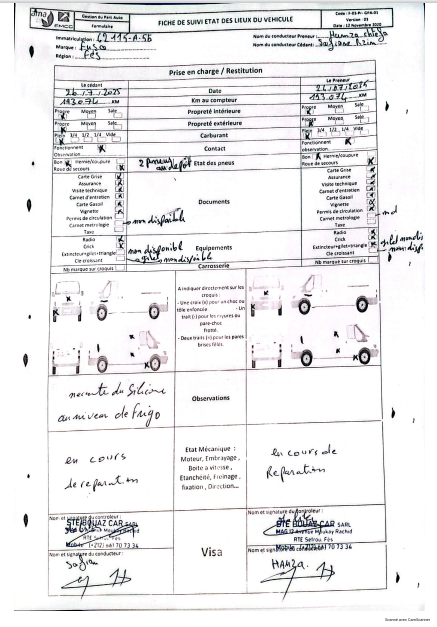 Gestion du Parc Auto
FICHE DE SUIVI ETAT DES LIEUX DU VEHICULE
Version : 01
Date : 12 Novembre 2020
EMCO
Immatriculation : 42115-A-56
Marque : Fuso
Région : Fès
Nom du conducteur Preneur :
Nom du conducteur Cédant :
Prise en charge / Restitution
Le cédant
Le Preneur
26/7/2025
Date
26/07/2025
193.074 KM
Km au compteur
193.074 KM
Propre Moyen Sale
Propriété intérieure
Propre Moyen Sale
Propre Moyen Sale
Propriété extérieure
Propre Moyen Sale
Plein 3/4 1/2 1/4 Vide
Carburant
Plein 3/4 1/2 1/4 Vide
Fonctionnent
Observation
Contact
Fonctionnent
observation
Bon Hernie/coupure
Roue de secours
2 pneus au depot
Etat des pneus
Bon Hernie/coupure
Roue de secours
Carte Grise
Assurance
Visite technique
Carnet d'entretien
Carte Gasoil
Vignette
Permis de circulation
Carnet metrologie
Taxe
non disponible
Documents
Carte Grise
Assurance
Visite technique
Carnet d'entretien
Carte Gasoil
Vignette
Permis de circulation
Carnet metrologie
Taxe
Radio
Crick
Extincteur+gilet+triangle
Cle croissant
non disponible
gilet non disponible
Equipements
Radio
Crick
Extincteur+gilet+triangle
Cle croissant
Nb marque sur croquis
Carrosserie
Nb marque sur croquis
A indiquer directement sur les
croquis :
- Une croix (x) pour un choc ou
tôle enfoncée. - Un
trait (-) pour les rayures ou
pare-choc
frotté.
- Deux traits (=) pour les pares
brises fêlés.
necessite du Silicone
au niveau de frigo
Observations
en cours
de reparation
Etat Mécanique :
Moteur, Embrayage,
Boite a vitesse,
Etanchéité, Freinage,
fixation, Direction...
en cours de
Reparation
Nom et signature du controleur :
STE BOUAZ CAR SARL
MAG 12 Avenue Moulay Rachid
RTE Sefrou, Fès
Mobile : (+212) 661 70 73 34
Nom et signature du controleur :
STE BOUAZ CAR SARL
MAG 12 Avenue Moulay Rachid
RTE Sefrou, Fès
Mobile : (+212) 661 70 73 34
Visa
Nom et signature du conducteur :
Sofian
Nom et signature du conducteur :
HAMZA
Scanné avec CamScanner